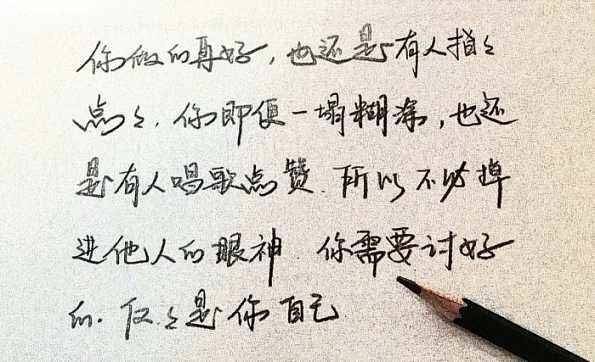 你做的再好，也还是有人指々
点々．你即便一塌糊涂，也还
是有人唱歌点赞．所以不必掉
进他人的眼神．你需要讨好
的．仅々是你自己